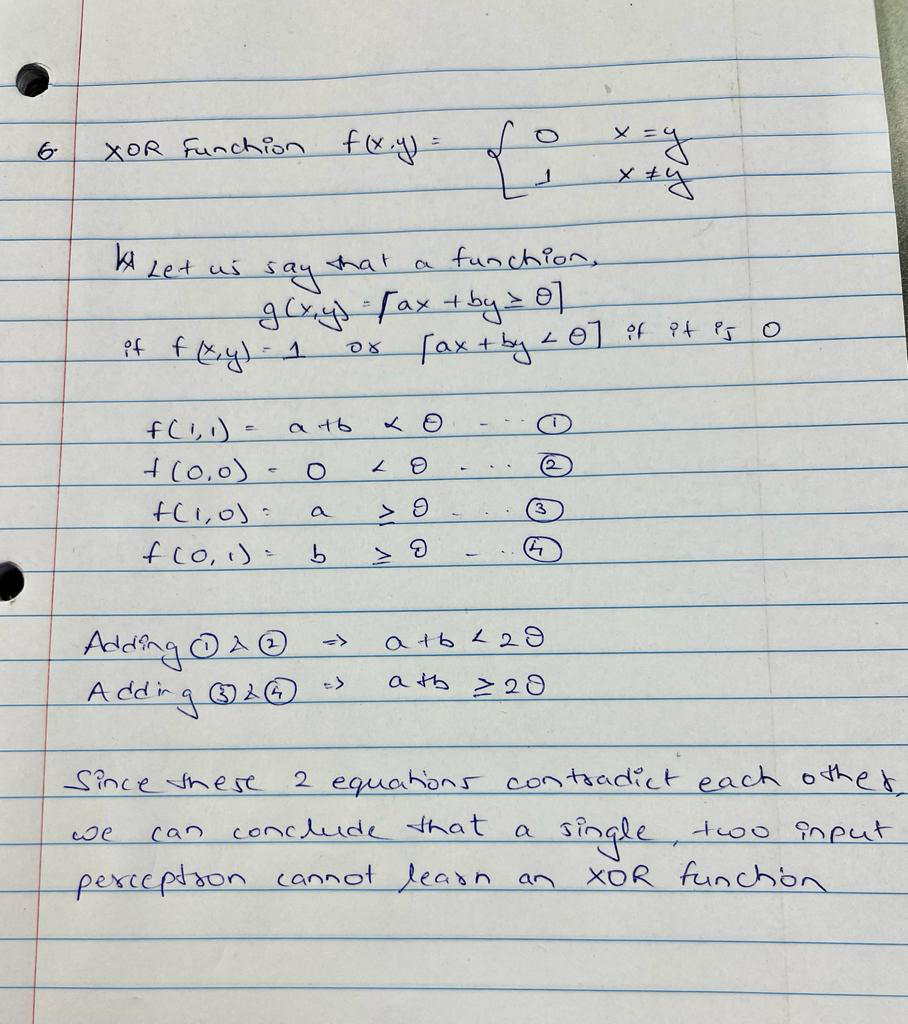 6. XOR Function f(x,y) = { 0 x = y
1 x ≠ y
Let us say that a function,
g(x,y) = [ax + by ≥ θ]
if f(x,y) = 1 or [ax + by < θ] if it is 0
f(1,1) = a+b < θ - - - ①
f(0,0) = 0 < θ - - - ②
f(1,0) = a ≥ θ - - - ③
f(0,1) = b ≥ θ - - - ④
Adding ① & ② => a+b < 2θ
Adding ③ & ④ => a+b ≥ 2θ
Since these 2 equations contradict each other,
we can conclude that a single, two input
perceptron cannot learn an XOR function